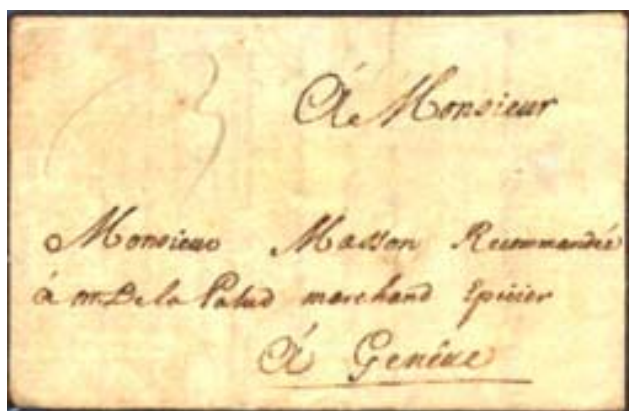 3
À Monsieur
Monsieur Masson Recommandée
à mr. De la Palud marchand Epicier
À Genêve